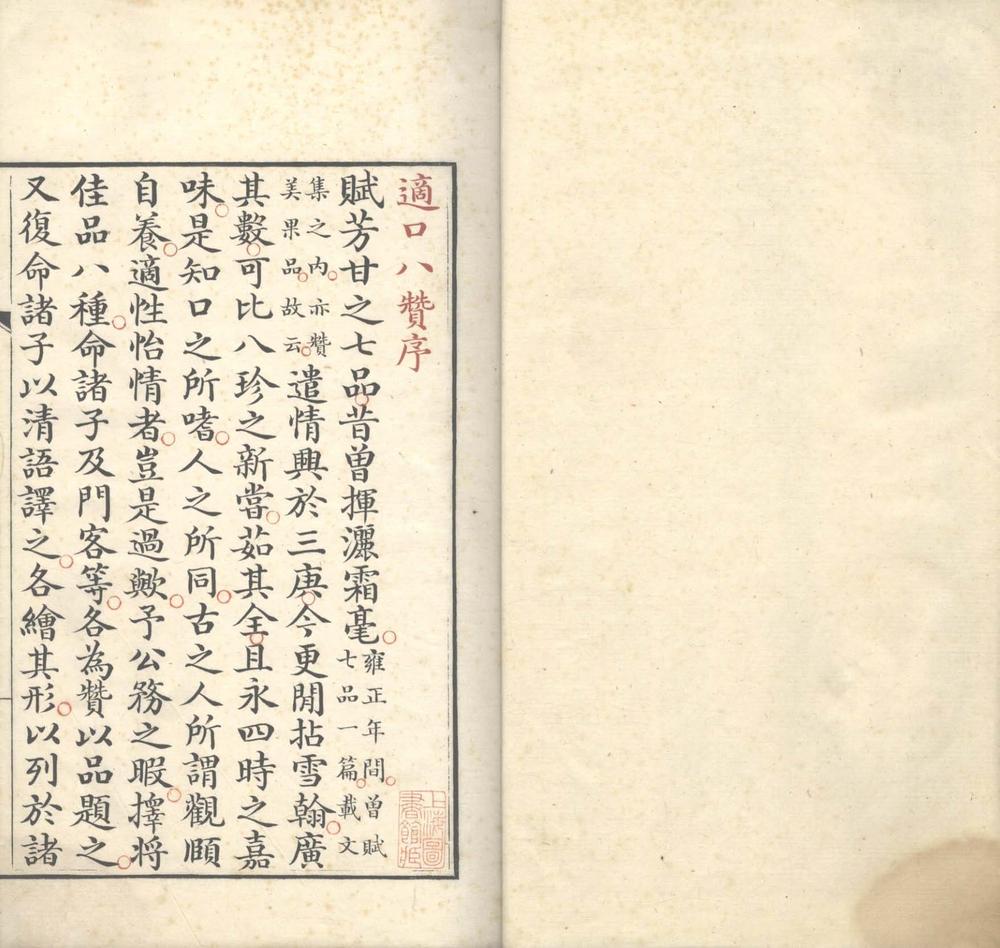 適口八贊序
賦芳甘之七品昔曾揮灑霜毫雍正年間曾賦七品一篇載文
集之内亦贊美果品故云遣情興於三庚今更閒拈雪翰廣
其數可比八珍之新嘗茹其全且永四時之嘉
味是知口之所嗜人之所同古之人所謂觀頤
自養適性怡情者豈是過歟予公務之暇擇將
佳品八種命諸子及門客等各為贊以品題之
又復命諸子以清語譯之各繪其形以列於諸
上海圖書館藏